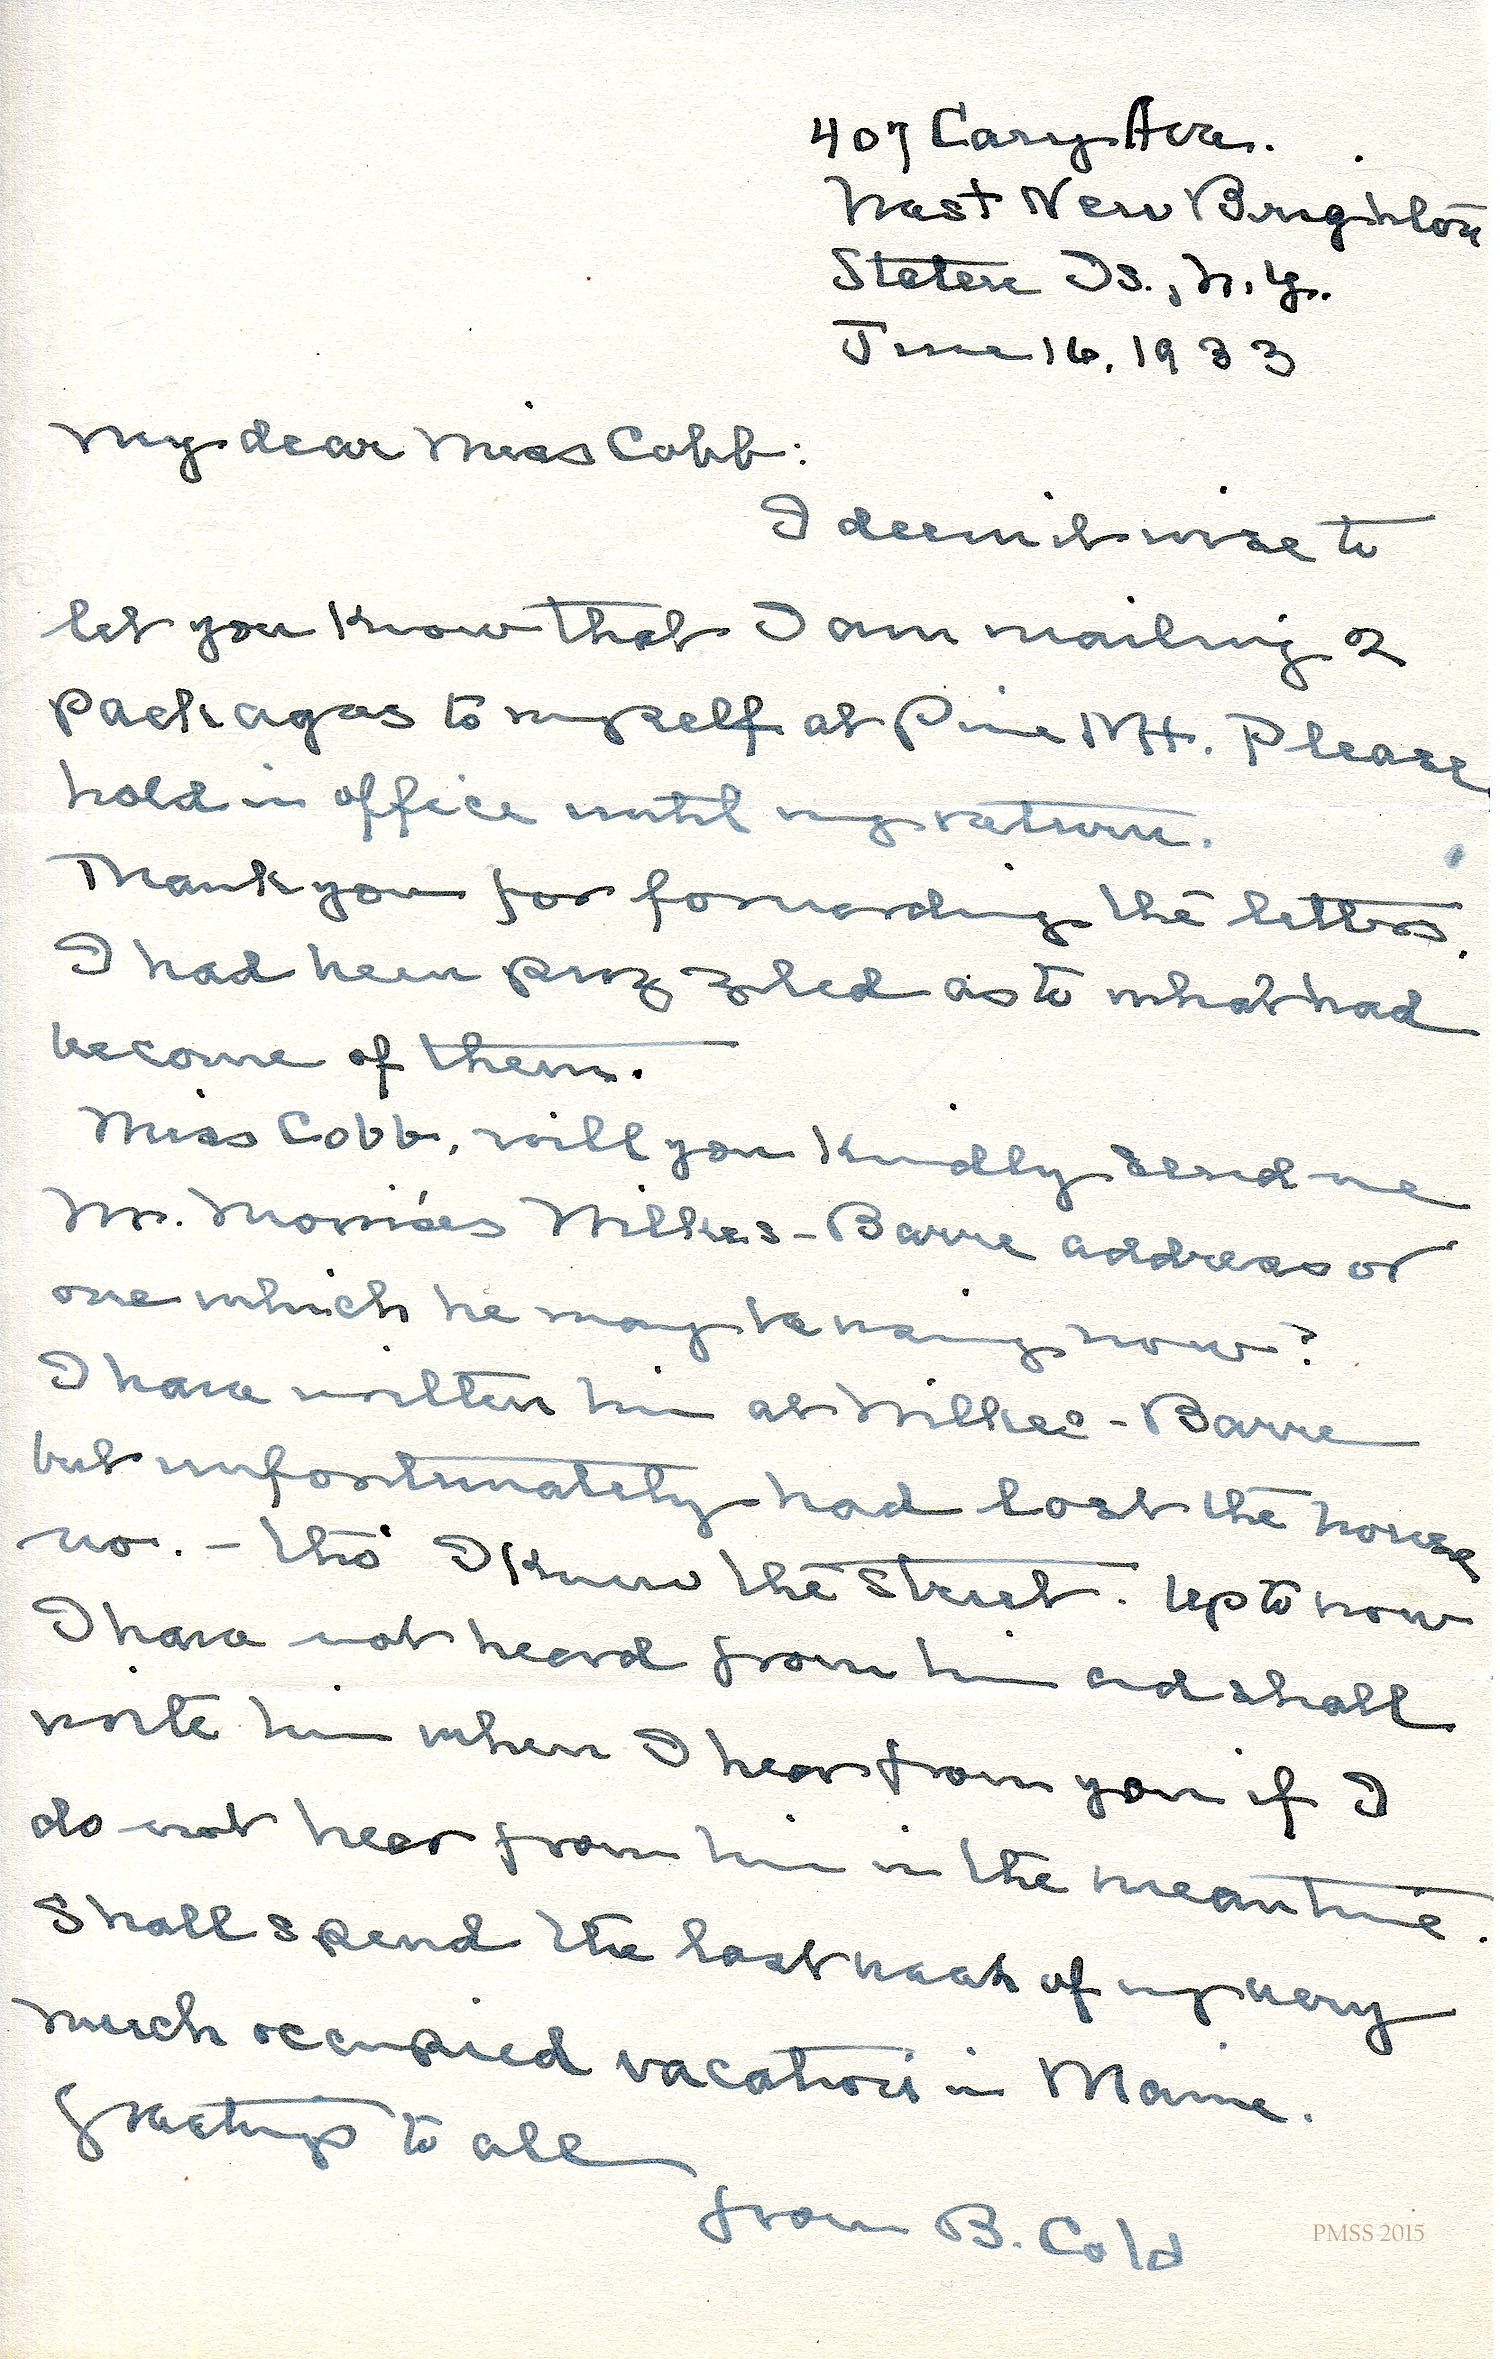 407 Cary Ave.
West New Brighton
Staten Is., N.Y.
June 16, 1933
My dear Miss Cobb:
I deem it wise to
let you know that I am mailing 2
packages to myself at Pine Mt. Please
hold in office until my return.
Thank you for forwarding the letters.
I had been puzzled as to what had
become of them.
Miss Cobb, will you kindly send me
Mr. Morris'es Wilkes-Barre address or
one which he may be using now?
I have written him at Wilkes-Barre
but unfortunately had lost the house
no. - tho' I knew the street. Up to now
I have not heard from him and shall
write him when I hear from you if I
do not hear from him in the meantime.
Shall spend the last week of my very
much occupied vacation in Maine.
Greetings to all
from B. Cold
PMSS 2015